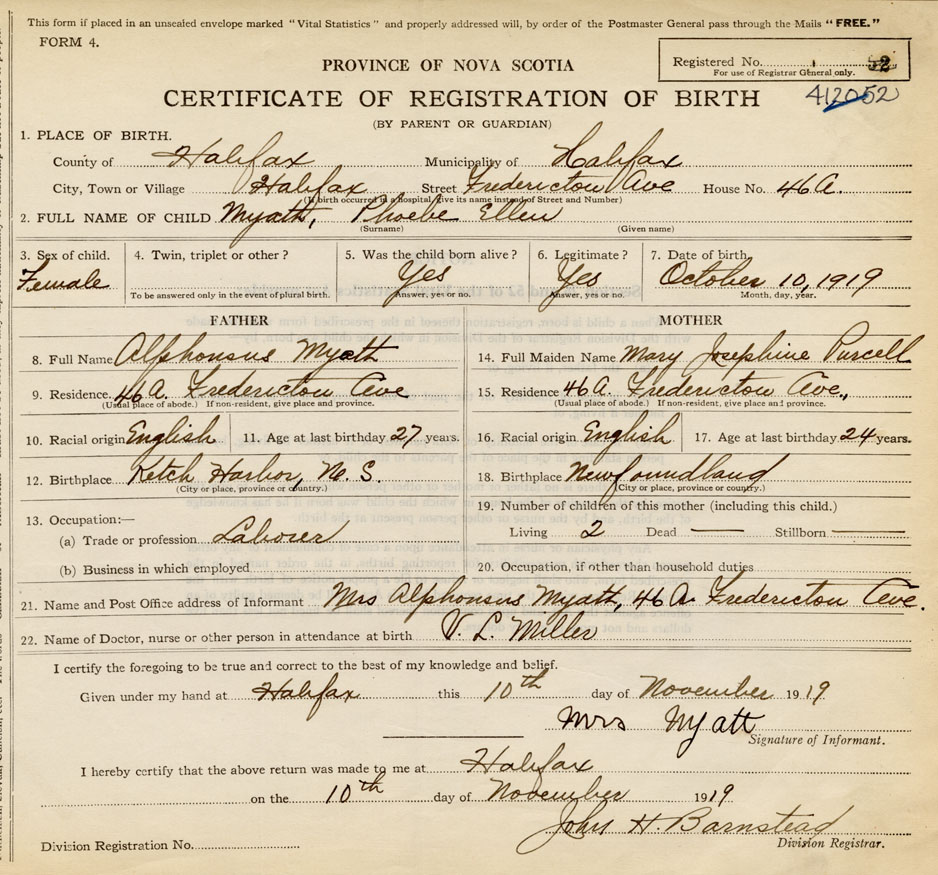 This form if placed in an unsealed envelope marked "Vital Statistics" and properly addressed will, by order of the Postmaster General pass through the Mails "FREE."
FORM 4.
Registered No. 52
For use of Registrar General only.
PROVINCE OF NOVA SCOTIA
412052
CERTIFICATE OF REGISTRATION OF BIRTH
(BY PARENT OR GUARDIAN)
1. PLACE OF BIRTH.
County of Halifax Municipality of Halifax
City, Town or Village Halifax Street Fredericton Ave House No. 46A.
(If birth occurred in a hospital, give its name instead of Street and Number)
2. FULL NAME OF CHILD Myatt, Phoebe Ellen
(Surname) (Given name)
3. Sex of child. 4. Twin, triplet or other? 5. Was the child born alive? 6. Legitimate? 7. Date of birth
Female Yes Yes October 10, 1919
To be answered only in the event of plural birth. Answer, yes or no. Answer, yes or no. Month, day, year.
FATHER MOTHER
8. Full Name Alphonsus Myatt 14. Full Maiden Name Mary Josephine Purcell
9. Residence. 46A. Fredericton Ave 15. Residence 46A. Fredericton Ave.,
(Usual place of abode.) If non-resident, give place and province. (Usual place of abode.) If non-resident, give place and province.
10. Racial origin English 11. Age at last birthday 27 years. 16. Racial origin English 17. Age at last birthday 24 years.
12. Birthplace Ketch Harbor, N. S. 18. Birthplace Newfoundland
(City or place, province or country.) (City or place, province or country.)
13. Occupation:— 19. Number of children of this mother (including this child.)
(a) Trade or profession Laborer Living 2 Dead — Stillborn —
(b) Business in which employed 20. Occupation, if other than household duties
21. Name and Post Office address of Informant Mrs Alphonsus Myatt, 46 A. Fredericton Ave.
22. Name of Doctor, nurse or other person in attendance at birth V. L. Miller
I certify the foregoing to be true and correct to the best of my knowledge and belief.
Given under my hand at Halifax this 10th day of November 1919
Mrs Myatt
Signature of Informant.
I hereby certify that the above return was made to me at Halifax
on the 10th day of November 1919
John H. Barnstead
Division Registration No. Division Registrar.